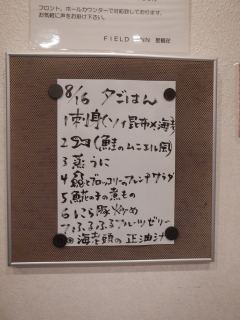 フロント、ホールカウンターで対応致しております。
お気軽にお声をお掛け下さい。
FIELD INN
8/16 夕ごはん
1 刺身(ソイ昆布〆海老)
2 (鮭のムニエル風)
3 蒸うに
4 とブロッコリーのフレンチサラダ
5 の子の煮もの
6 いくら豚炒め
7 ふるふるフルーツゼリー
海老頭の正油汁